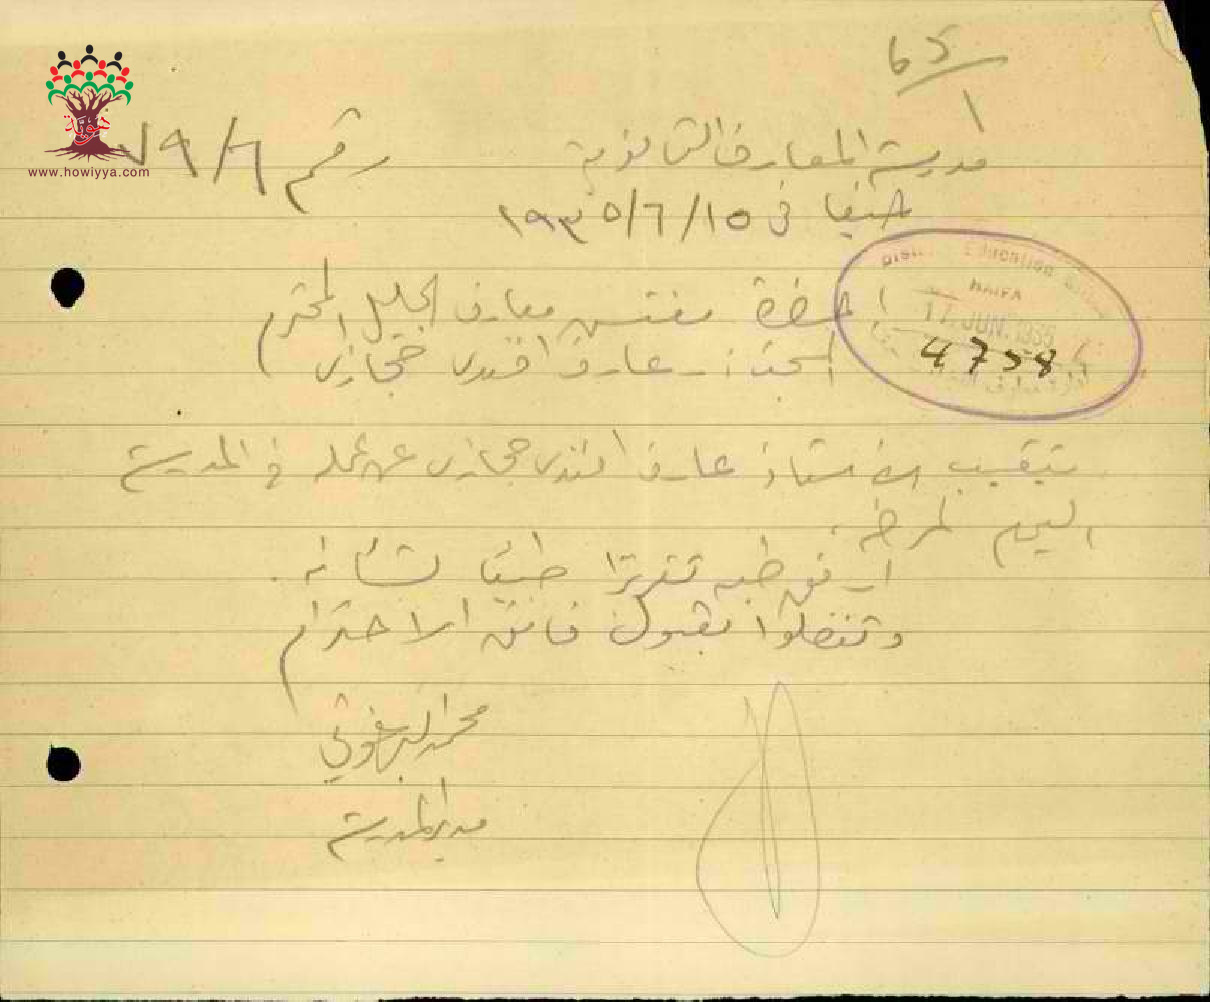 65/1
مدرسة المعارف الثانوية
رقم ٧٩/٦
حيفا في ١٩٣٥/٦/١٥
District Education Office
HAIFA
17 JUN. 1935
4758
حضرة مفتش معارف الجليل المحترم
المبحث : عارف افندي حجازي
يتغيب الأستاذ عارف افندي حجازي عن عمله في المدرسة
اليوم لمرضه.
ارفق طيه تقريرا طبيا بشأنه.
وتفضلوا بقبول فائق الاحترام
محمد البرغوثي
مدير المدرسة
هوية
www.howiyya.com